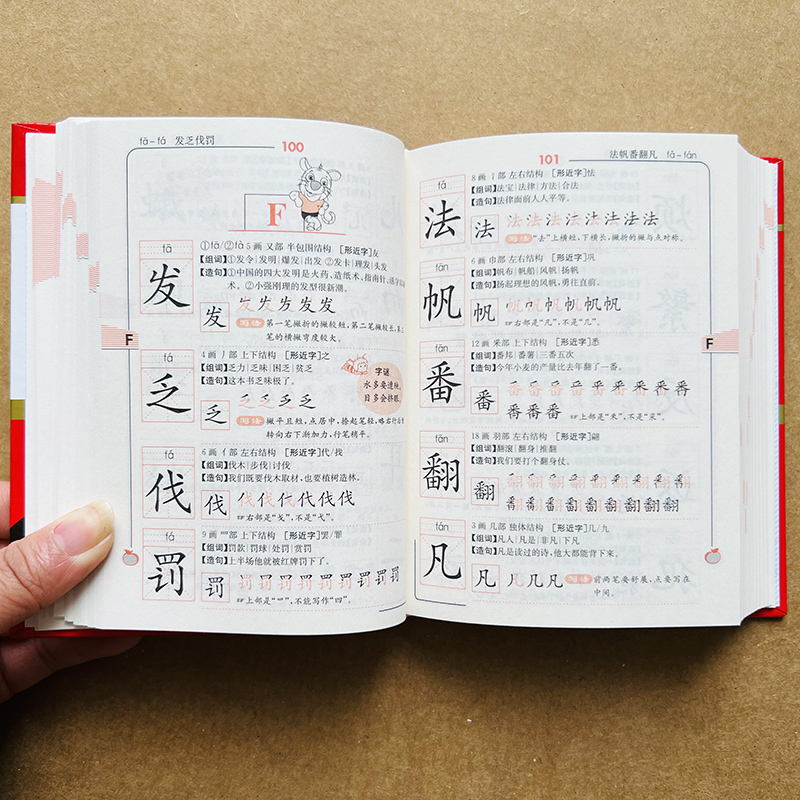 fā－fá 发乏伐罚
100
F
fā
发
①fā/②fà 5画 又部 半包围结构 [形近字]友
【组词】①发令|发明|爆发|出发 ②发卡|理发|头发
【造句】①中国的四大发明是火药、造纸术、指南针、活字印刷
术。②小强刚理的发型很新潮。
发
写语 第一笔撇折的撇较短,第二笔撇较长,第二
笔的横撇弯度较大。
F
fá
乏
4画 丿部 上下结构 [形近字]之
【组词】乏力|乏味|困乏|贫乏
【造句】这本书乏味极了。
字谜
水多要遭殃,
目多会挤眼。
乏
写语 撇平且短,点居中,捺起笔轻,略右行后再
转向右下渐加力,行笔稍平。
fá
伐
6画 亻部 左右结构 [形近字]代/找
【组词】伐木|步伐|讨伐
【造句】我们既要伐木取材,也要植树造林。
伐
右部是“戈”,不是“弋”。
fá
罚
9画 罒部 上下结构 [形近字]罢/罪
【组词】罚款|罚球|处罚|赏罚
【造句】上半场他就被红牌罚下了。
罚
上部是“罒”,不能写作“四”。
101
法帆番翻凡 fǎ－fán
fǎ
法
8画 氵部 左右结构 [形近字]怯
【组词】法宝|法律|方法|合法
【造句】法律面前人人平等。
法
写语 “去”上横短,下横长,撇折的撇与点对称。
fān
帆
6画 巾部 左右结构 [形近字]巩
【组词】帆布|帆船|风帆|扬帆
【造句】扬起理想的风帆,勇往直前。
帆
右部是“凡”,不是“几”。
fān
番
12画 釆部 上下结构 [形近字]悉
【组词】番邦|番薯|三番五次
【造句】今年小麦的产量比去年翻了一番。
番
上部是“釆”,不是“采”。
F
fān
翻
18画 羽部 左右结构 [形近字]翩
【组词】翻滚|翻身|推翻
【造句】我们要打个翻身仗。
翻
fán
凡
3画 几部 独体结构 [形近字]几/九
【组词】凡人|凡是|非凡|下凡
【造句】凡是读过的诗,他大都能背下来。
凡
写语 前两笔要舒展,点要写在
中间。